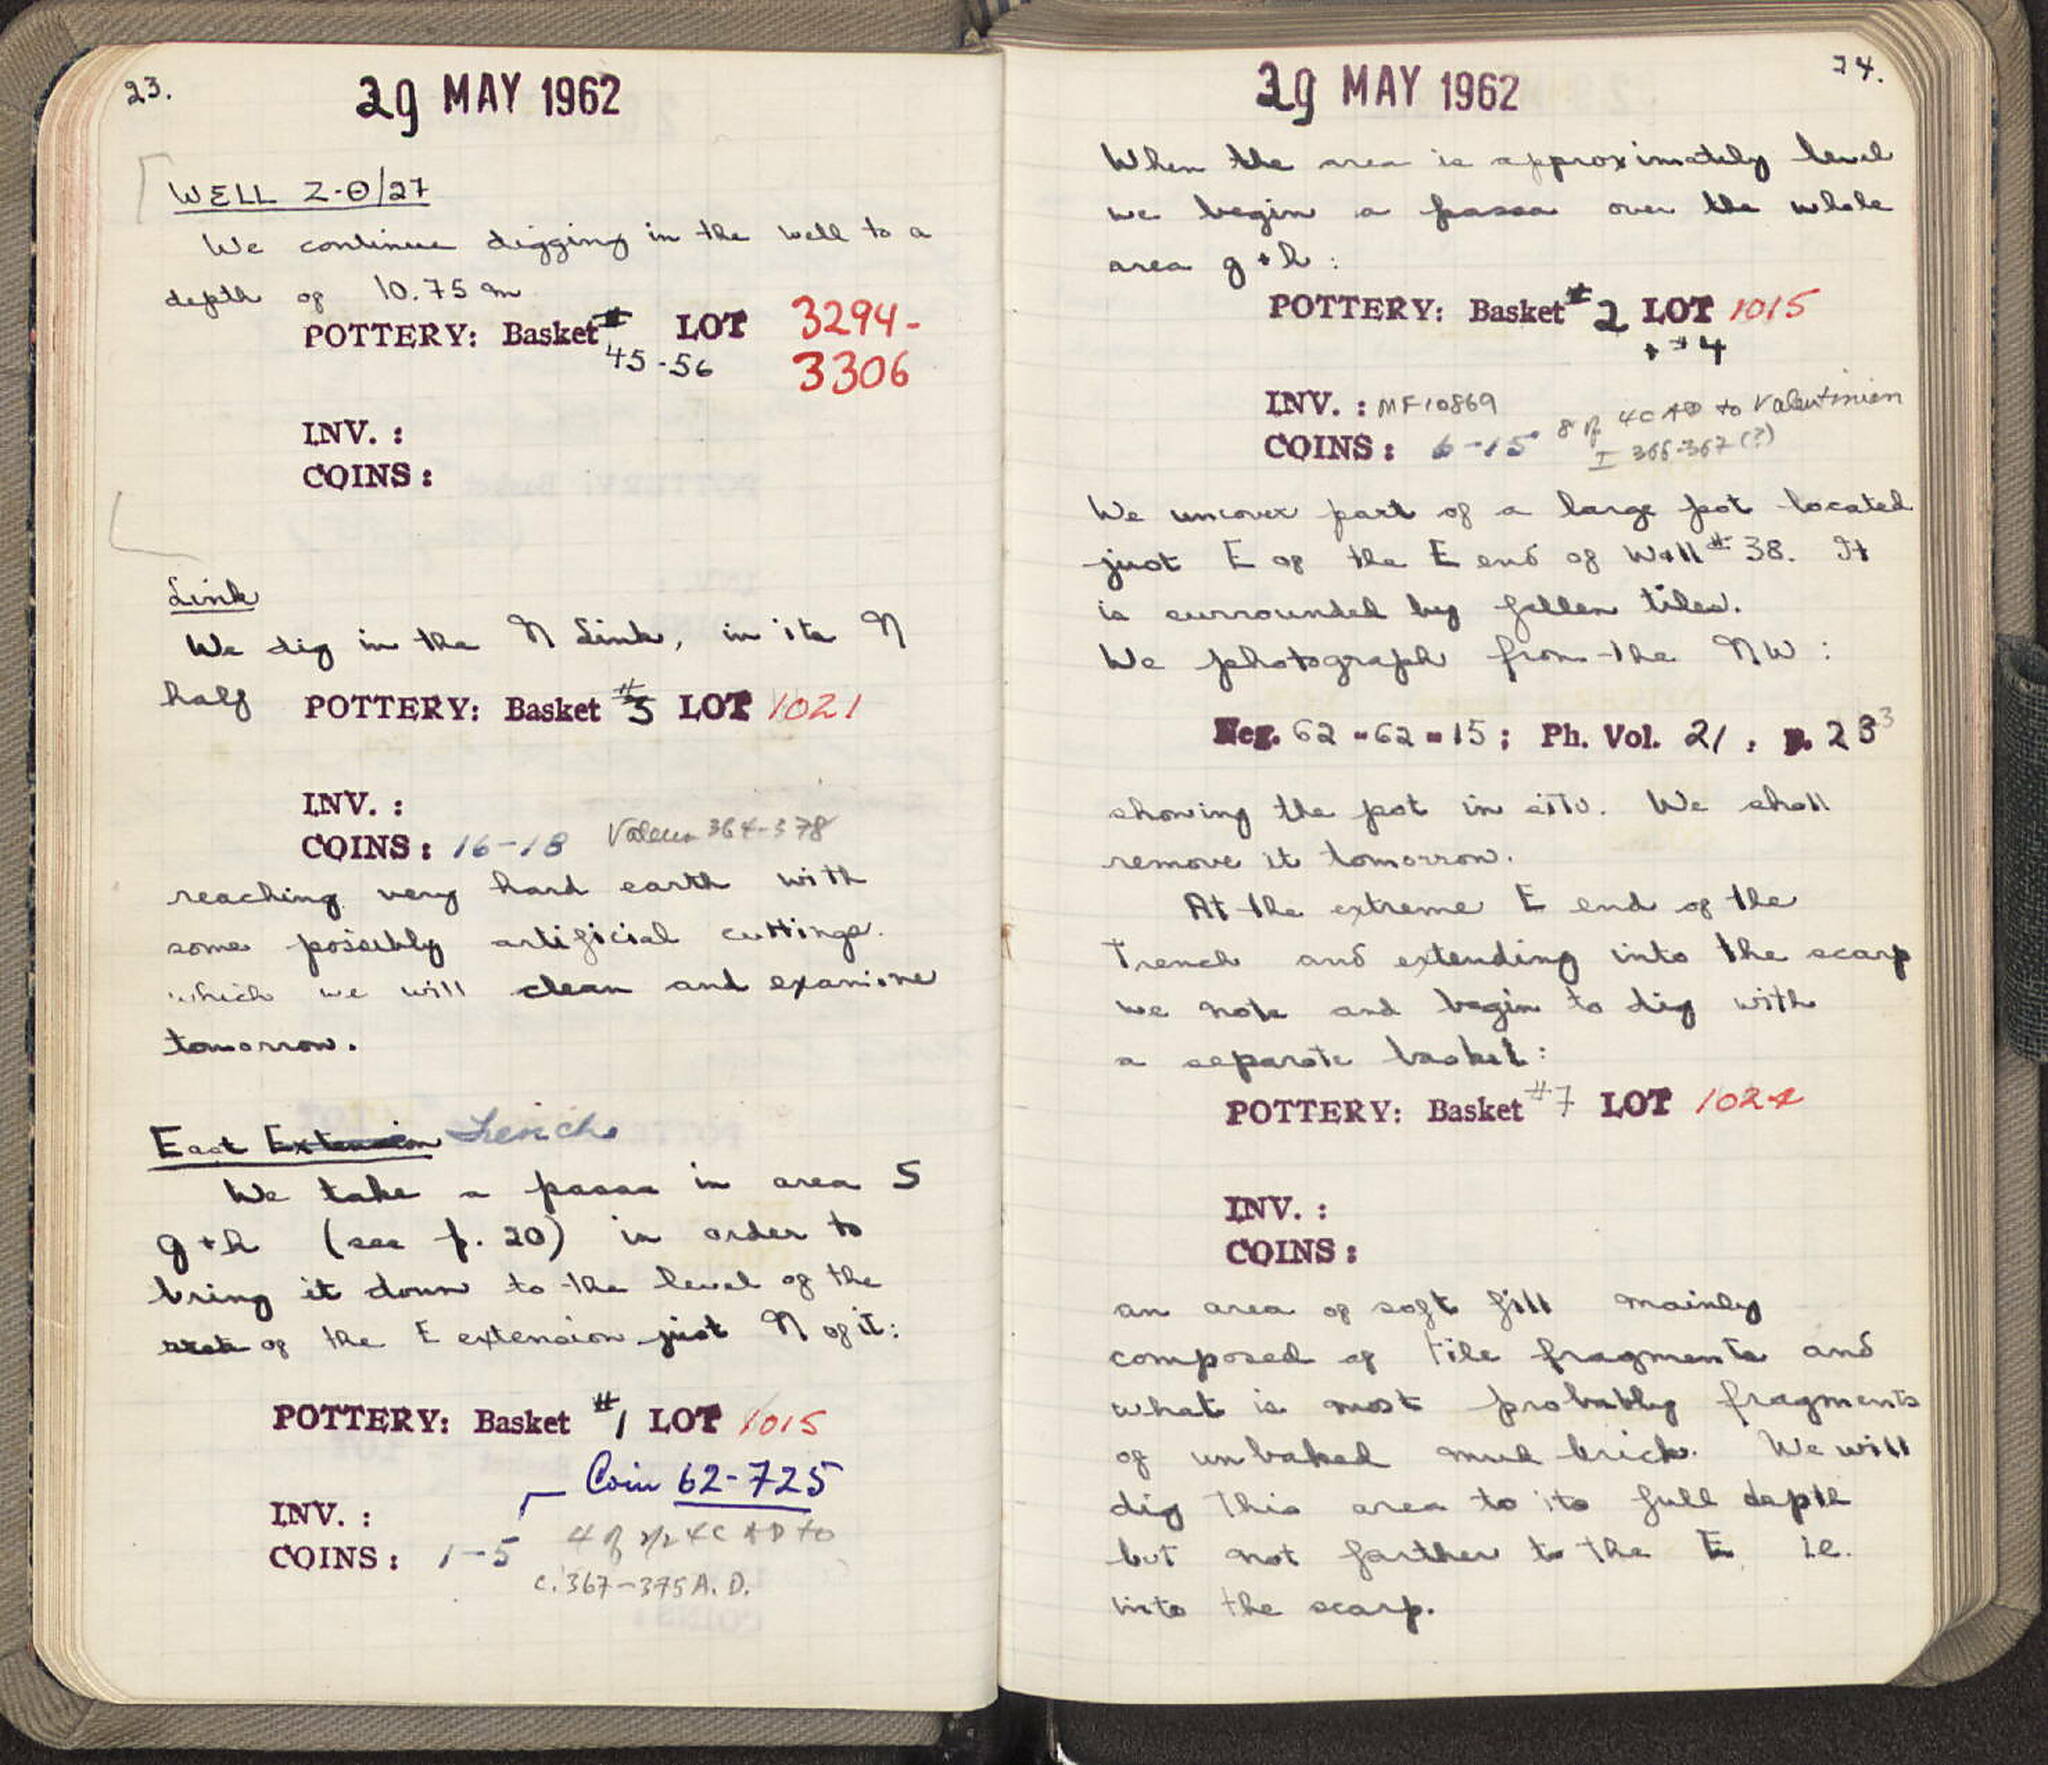 23.
29 MAY 1962
WELL Z-Θ/27
We continue digging in the well to a
depth of 10.75 m
POTTERY: Basket # LOT 3294-
45-56 3306
INV. :
COINS :
Link
We dig in the N Link, in its N
half POTTERY: Basket #5 LOT 1021
INV. :
COINS : 16-18 Valens 364-378
reaching very hard earth with
some possibly artificial cuttings.
which we will clean and examine
tomorrow.
East Extension Trench
We take a passa in area 5
g+h (see p. 20) in order to
bring it down to the level of the
rest of the E extension just N of it:
POTTERY: Basket #1 LOT 1015
Coin 62-725
INV. :
COINS : 1-5 4 of 2/2 4C AD to
c. 367-375 A.D.
24.
29 MAY 1962
When the area is approximately level
we begin a passa over the whole
area g+h :
POTTERY: Basket #2 LOT 1015
+ #4
INV. : MF10869
COINS : 6-15 8 of 4C AD to Valentinian
I 366-367(?)
We uncover part of a large pot located
just E of the E end of Wall # 38. It
is surrounded by fallen tiles.
We photograph from the NW :
Neg. 62-62-15; Ph. Vol. 21, p. 23
showing the pot in situ. We shall
remove it tomorrow.
At the extreme E end of the
Trench and extending into the scarp
we note and begin to dig with
a separate basket:
POTTERY: Basket #7 LOT 1024
INV. :
COINS :
an area of soft fill mainly
composed of tile fragments and
what is most probably fragments
of unbaked mud brick. We will
dig this area to its full depth
but not farther to the E i.e.
into the scarp.